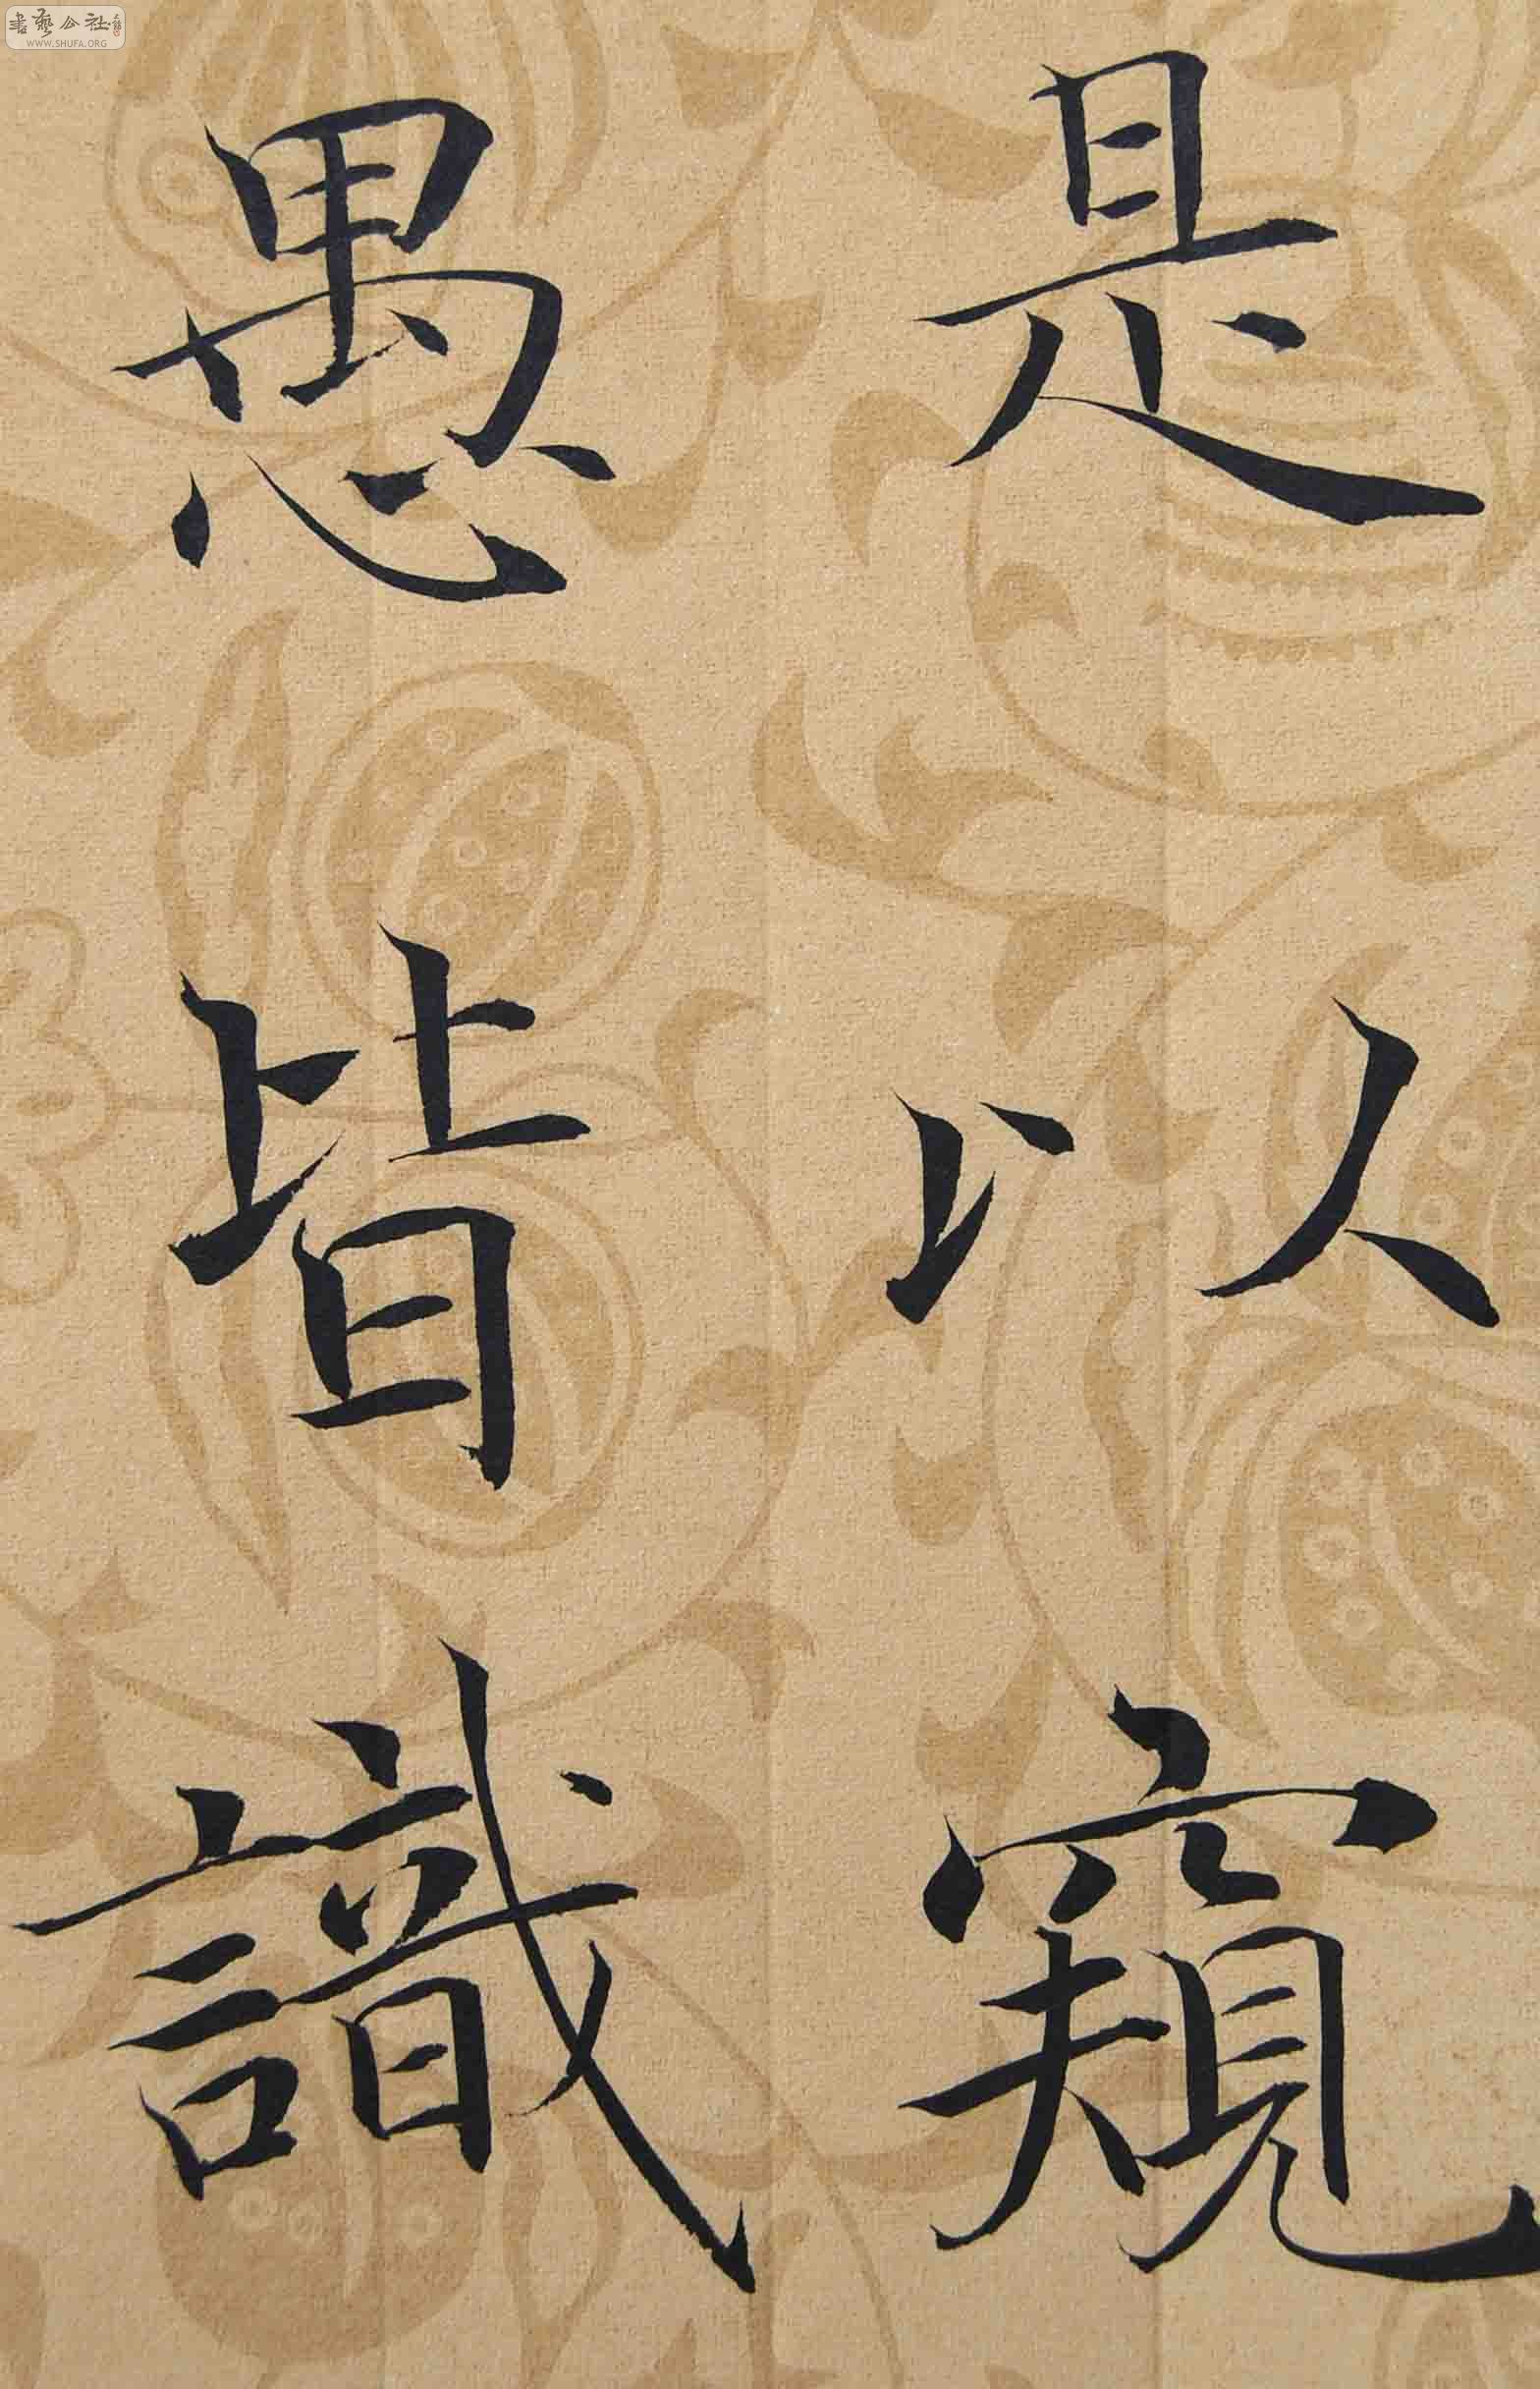 是以窺
愚皆識
書藝公社
WWW.SHUFA.ORG